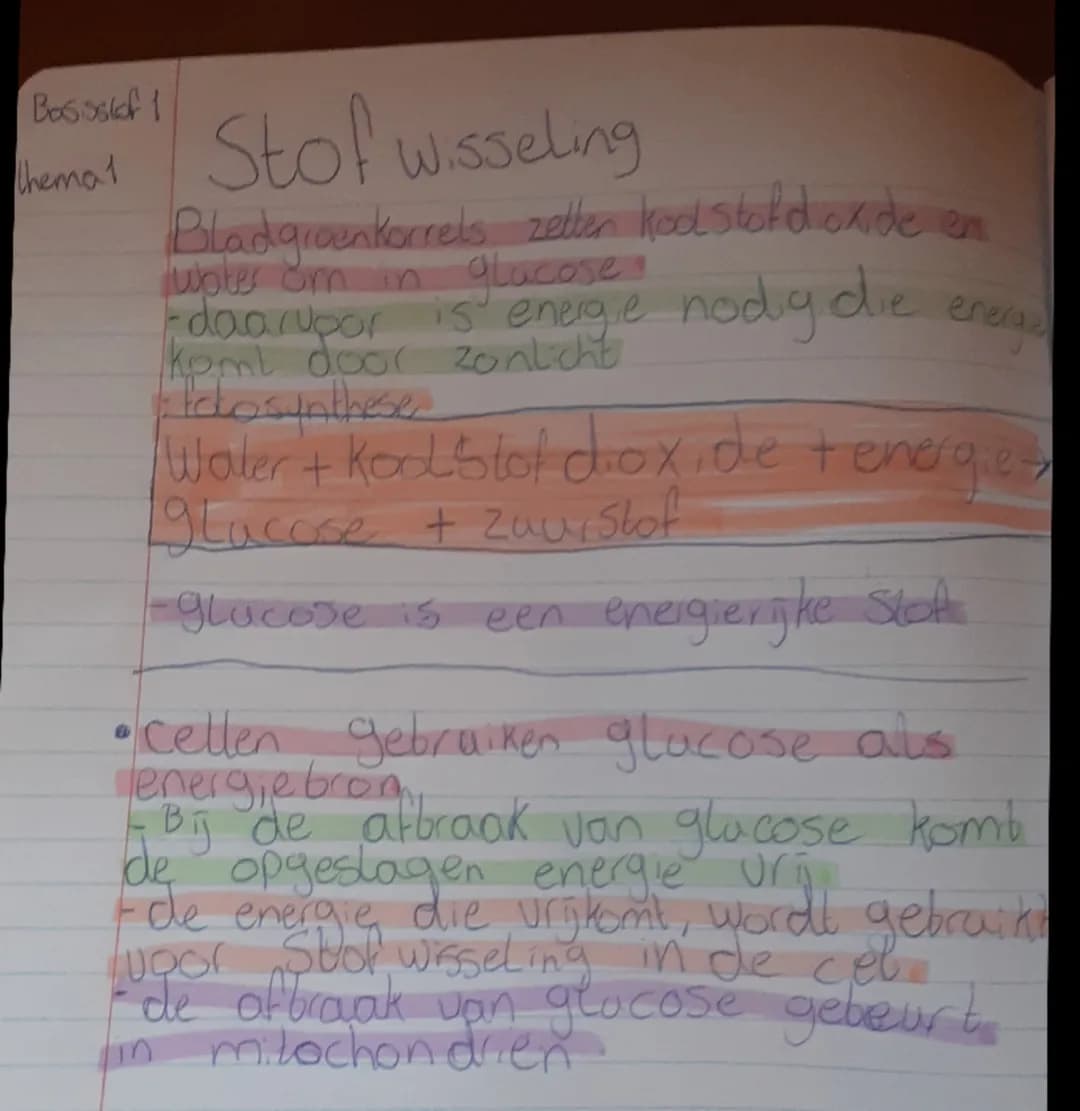 Basisstof 1
thema 1
Stofwisseling
Bladgroenkorrels zetten koolstofdoxide en
water om in glucose
-daarvoor is energie nodig die energie
komt door zonlicht
-fotosynthese
Water + koolstofdioxide + energie →
glucose + zuurstof
-glucose is een energierijke stof
• cellen gebruiken glucose als
energiebron
- Bij de afbraak van glucose komt
de opgeslagen energie vrij
-de energie die vrijkomt, wordt gebruikt
voor stofwisseling in de cel
-de afbraak van glucose gebeurt
in mitochondriën